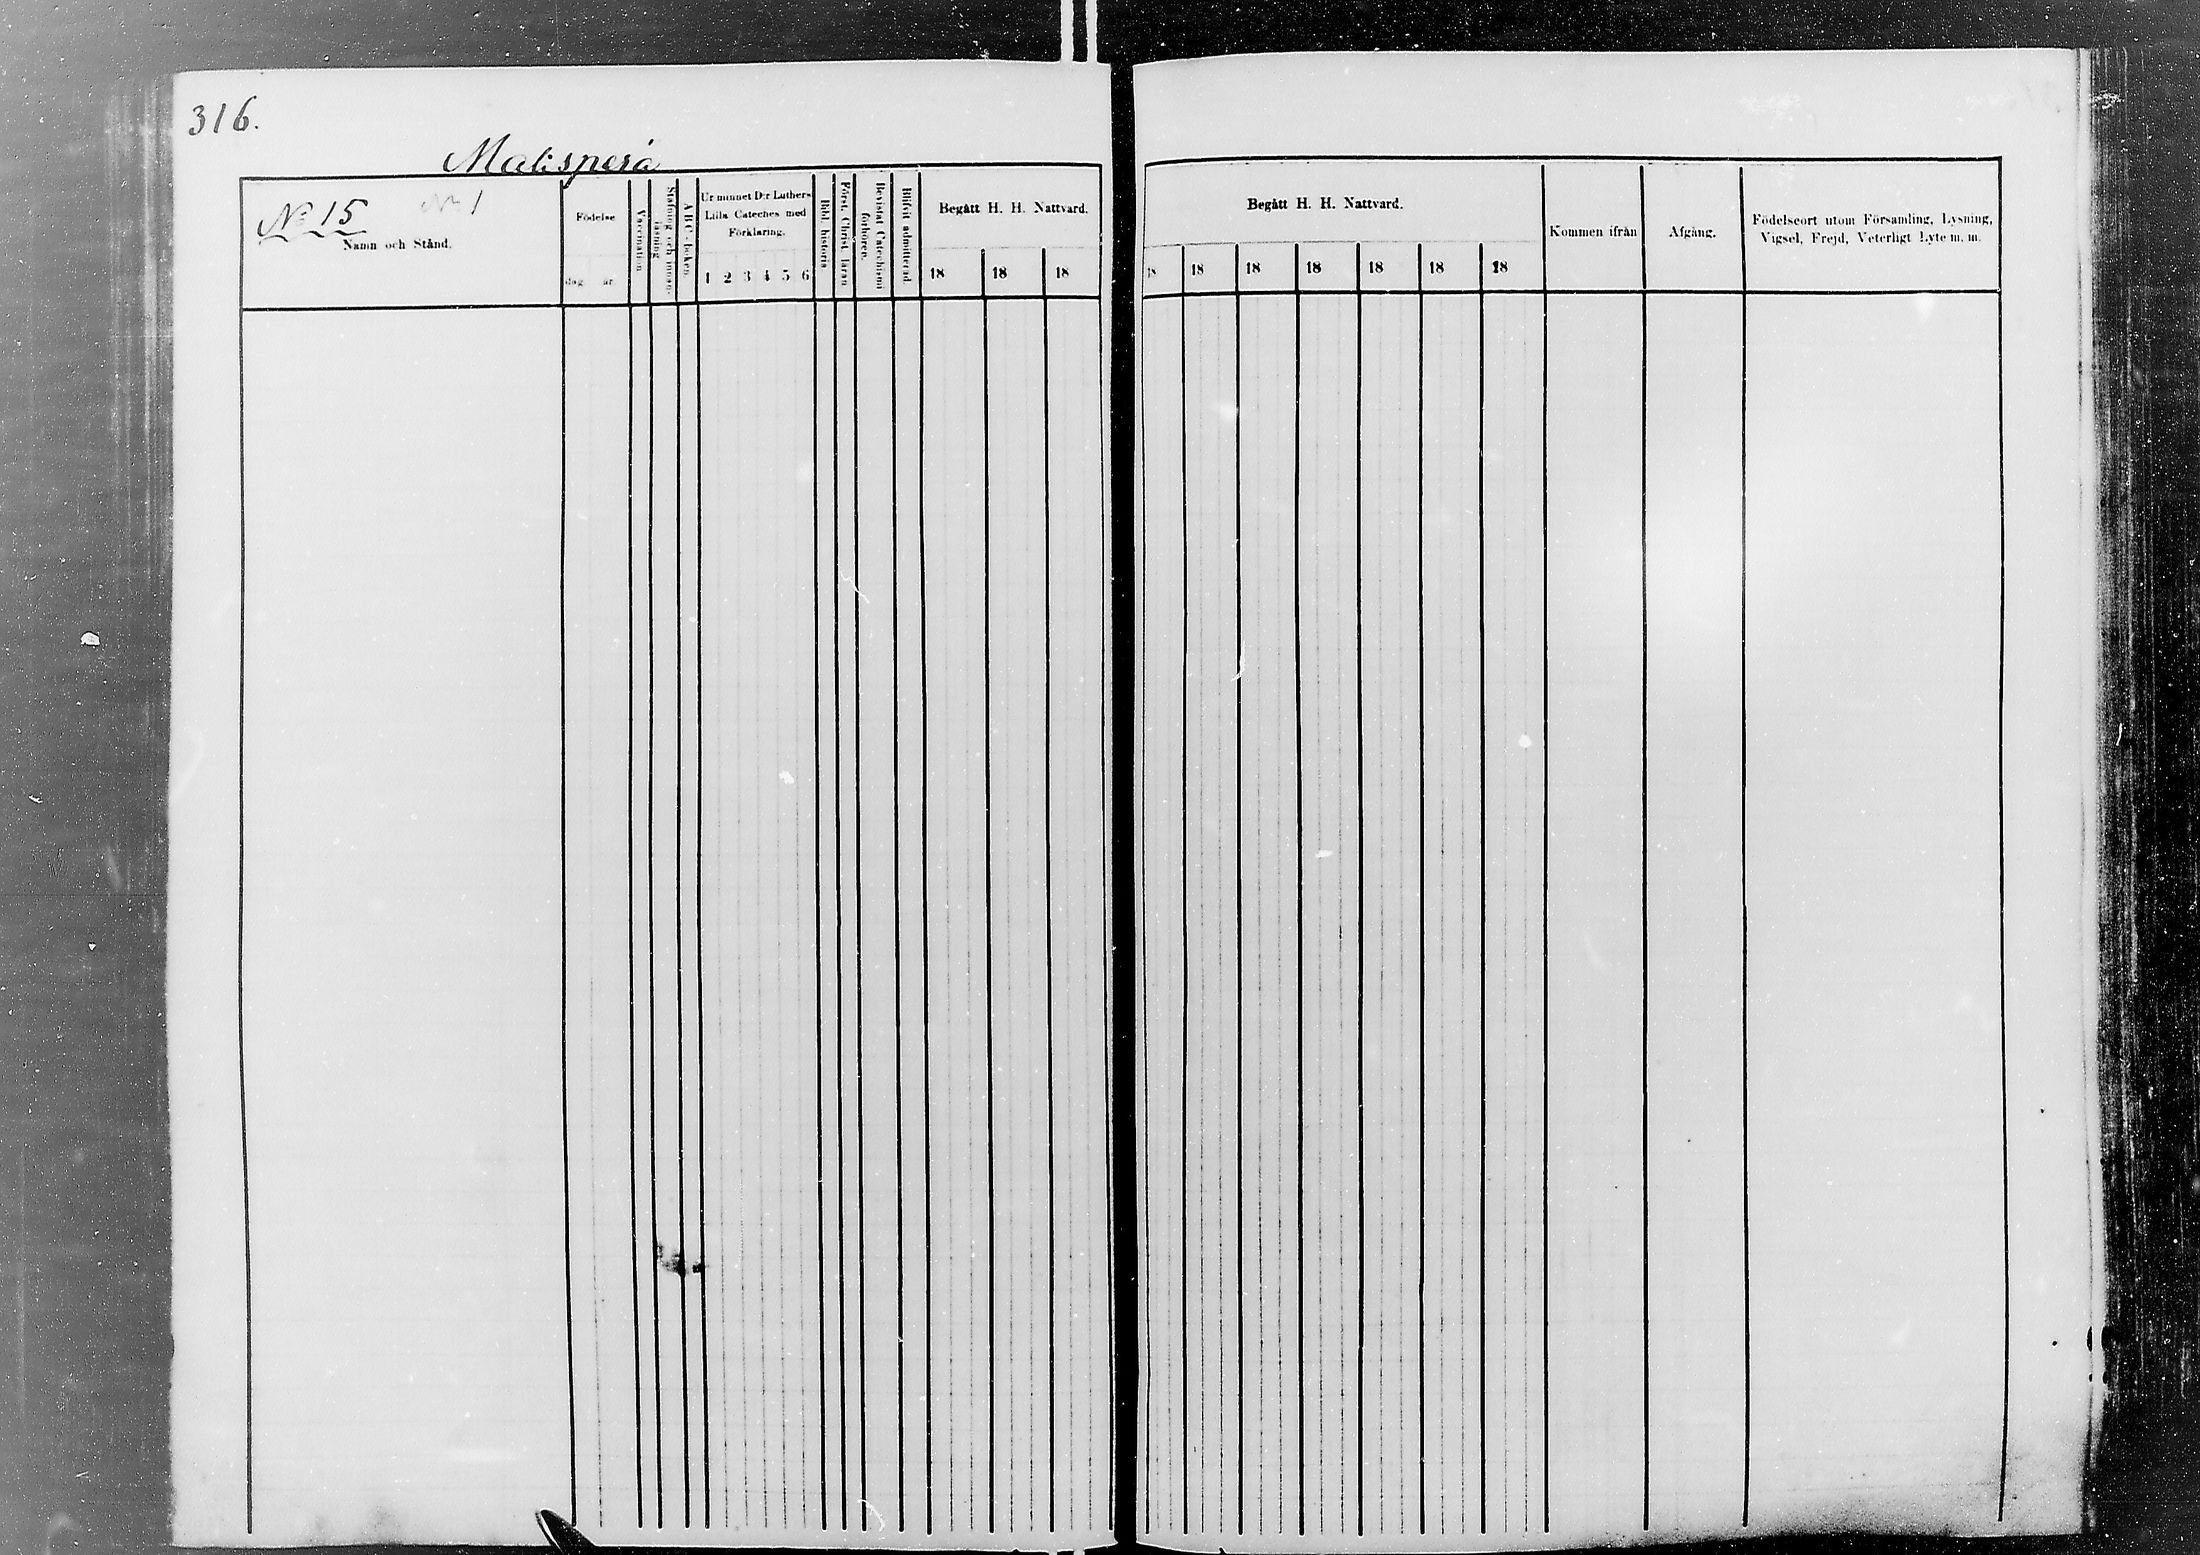 316.
Matisperä
No 15 No 1
Namn och Stånd.
Födelse
dag år
Vaccination
Stafning och innan-
läsning
ABC-boken
Ur minnet D:r Luthers
Lilla Cateches med
Förklaring.
1 2 3 4 5 6
Bibl. historia
Först. Christ. läran
Bevistat Catechismi
förhörere.
Blifvit admitterad
Begått H. H. Nattvard.
18 18 18
Begått H. H. Nattvard.
18 18 18 18 18 18 18
Kommen ifrån
Afgång.
Födelseort utom Församling, Lysning,
Vigsel, Frejd, Veterligt Lyte m. m.